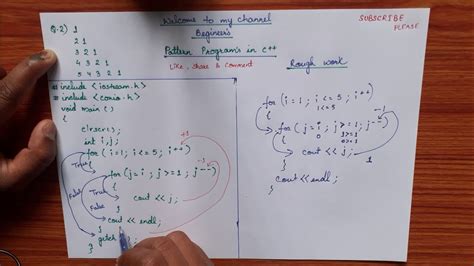 Welcome to my channel
Begineers
Pattern Program's in C++
Like, Share & Comment
SUBSCRIBE
PLEASE
Q.2) 1
2 1
3 2 1
4 3 2 1
5 4 3 2 1
# include <iostream.h>
# include <conio.h>
void main()
{
clrscr();
int i,j;
for (i=1; i<=5; i++)
{
for (j=i; j>=1; j--)
{
cout << j;
}
cout << endl;
}
getch
}
True
False
True
False
+1
-1
Rough work
for (i=1; i<=5; i++)
1<=5
{
for (j=i; j>=1; j--)
{
cout << j;
1
}
cout << endl;
}